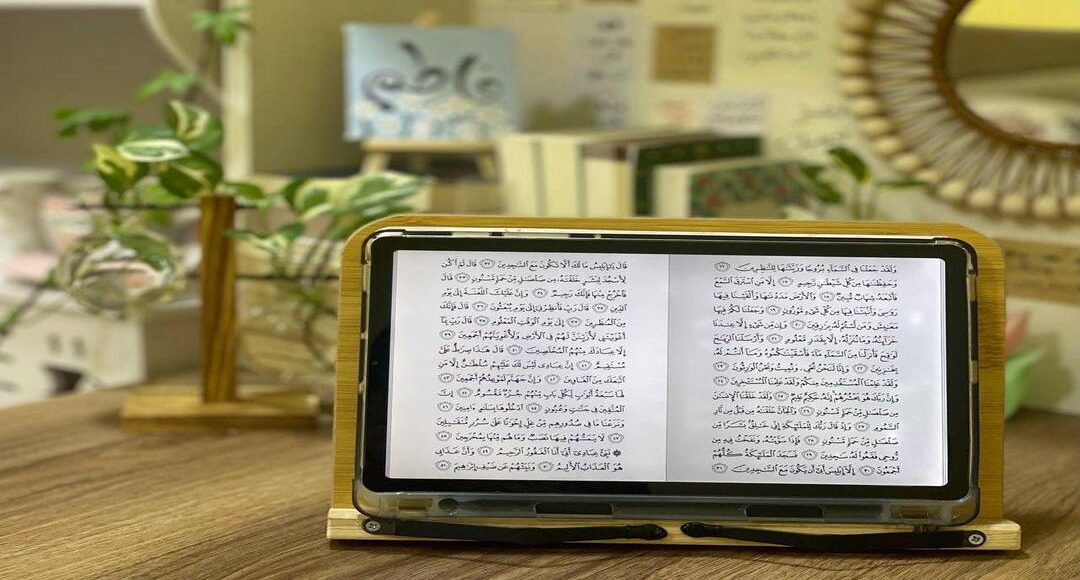 فاطمة
وَلَقَدْ جَعَلْنَا فِي السَّمَاءِ بُرُوجًا وَزَيَّنَّٰهَا لِلنَّٰظِرِينَ ١٦
وَحَفِظْنَٰهَا مِن كُلِّ شَيْطَٰنٍ رَّجِيمٍ ١٧ إِلَّا مَنِ اسْتَرَقَ السَّمْعَ
فَأَتْبَعَهُ شِهَابٌ مُّبِينٌ ١٨ وَالْأَرْضَ مَدَدْنَٰهَا وَأَلْقَيْنَا فِيهَا
رَوَٰسِيَ وَأَنبَتْنَا فِيهَا مِن كُلِّ شَيْءٍ مَّوْزُونٍ ١٩ وَجَعَلْنَا لَكُمْ فِيهَا
مَعَٰيِشَ وَمَن لَّسْتُمْ لَهُ بِرَٰزِقِينَ ٢٠ وَإِن مِّن شَيْءٍ إِلَّا عِندَنَا
خَزَائِنُهُ وَمَا نُنَزِّلُهُ إِلَّا بِقَدَرٍ مَّعْلُومٍ ٢١ وَأَرْسَلْنَا الرِّيَٰحَ
لَوَٰقِحَ فَأَنزَلْنَا مِنَ السَّمَاءِ مَاءً فَأَسْقَيْنَٰكُمُوهُ وَمَا أَنتُمْ لَهُ
بِخَٰزِنِينَ ٢٢ وَإِنَّا لَنَحْنُ نُحْيِ وَنُمِيتُ وَنَحْنُ الْوَٰرِثُونَ ٢٣
وَلَقَدْ عَلِمْنَا الْمُسْتَقْدِمِينَ مِنكُمْ وَلَقَدْ عَلِمْنَا الْمُسْتَـْٔخِرِينَ ٢٤
وَإِنَّ رَبَّكَ هُوَ يَحْشُرُهُمْ إِنَّهُ حَكِيمٌ عَلِيمٌ ٢٥ وَلَقَدْ خَلَقْنَا الْإِنسَٰنَ
مِن صَلْصَٰلٍ مِّنْ حَمَإٍ مَّسْنُونٍ ٢٦ وَالْجَانَّ خَلَقْنَٰهُ مِن قَبْلُ مِن نَّارِ
السَّمُومِ ٢٧ وَإِذْ قَالَ رَبُّكَ لِلْمَلَٰئِكَةِ إِنِّي خَٰلِقٌ بَشَرًا مِّن
صَلْصَٰلٍ مِّنْ حَمَإٍ مَّسْنُونٍ ٢٨ فَإِذَا سَوَّيْتُهُ وَنَفَخْتُ فِيهِ مِن
رُّوحِي فَقَعُوا لَهُ سَٰجِدِينَ ٢٩ فَسَجَدَ الْمَلَٰئِكَةُ كُلُّهُمْ
أَجْمَعُونَ ٣٠ إِلَّا إِبْلِيسَ أَبَىٰ أَن يَكُونَ مَعَ السَّٰجِدِينَ ٣١
قَالَ يَٰإِبْلِيسُ مَا لَكَ أَلَّا تَكُونَ مَعَ السَّٰجِدِينَ ٣٢ قَالَ لَمْ أَكُن
لِّأَسْجُدَ لِبَشَرٍ خَلَقْتَهُ مِن صَلْصَٰلٍ مِّنْ حَمَإٍ مَّسْنُونٍ ٣٣ قَالَ
فَاخْرُجْ مِنْهَا فَإِنَّكَ رَجِيمٌ ٣٤ وَإِنَّ عَلَيْكَ اللَّعْنَةَ إِلَىٰ يَوْمِ
الدِّينِ ٣٥ قَالَ رَبِّ فَأَنظِرْنِي إِلَىٰ يَوْمِ يُبْعَثُونَ ٣٦ قَالَ فَإِنَّكَ
مِنَ الْمُنظَرِينَ ٣٧ إِلَىٰ يَوْمِ الْوَقْتِ الْمَعْلُومِ ٣٨ قَالَ رَبِّ بِمَا
أَغْوَيْتَنِي لَأُزَيِّنَنَّ لَهُمْ فِي الْأَرْضِ وَلَأُغْوِيَنَّهُمْ أَجْمَعِينَ ٣٩
إِلَّا عِبَادَكَ مِنْهُمُ الْمُخْلَصِينَ ٤٠ قَالَ هَٰذَا صِرَٰطٌ عَلَيَّ
مُسْتَقِيمٌ ٤١ إِنَّ عِبَادِي لَيْسَ لَكَ عَلَيْهِمْ سُلْطَٰنٌ إِلَّا مَنِ
اتَّبَعَكَ مِنَ الْغَاوِينَ ٤٢ وَإِنَّ جَهَنَّمَ لَمَوْعِدُهُمْ أَجْمَعِينَ ٤٣
لَهَا سَبْعَةُ أَبْوَٰبٍ لِّكُلِّ بَابٍ مِّنْهُمْ جُزْءٌ مَّقْسُومٌ ٤٤ إِنَّ
الْمُتَّقِينَ فِي جَنَّٰتٍ وَعُيُونٍ ٤٥ ادْخُلُوهَا بِسَلَٰمٍ ءَامِنِينَ ٤٦
وَنَزَعْنَا مَا فِي صُدُورِهِم مِّنْ غِلٍّ إِخْوَٰنًا عَلَىٰ سُرُرٍ مُّتَقَٰبِلِينَ
٤٧ لَا يَمَسُّهُمْ فِيهَا نَصَبٌ وَمَا هُم مِّنْهَا بِمُخْرَجِينَ
٤٨ ۞ نَبِّئْ عِبَادِي أَنِّي أَنَا الْغَفُورُ الرَّحِيمُ ٤٩ وَأَنَّ عَذَابِي
هُوَ الْعَذَابُ الْأَلِيمُ ٥٠ وَنَبِّئْهُمْ عَن ضَيْفِ إِبْرَٰهِيمَ ٥١